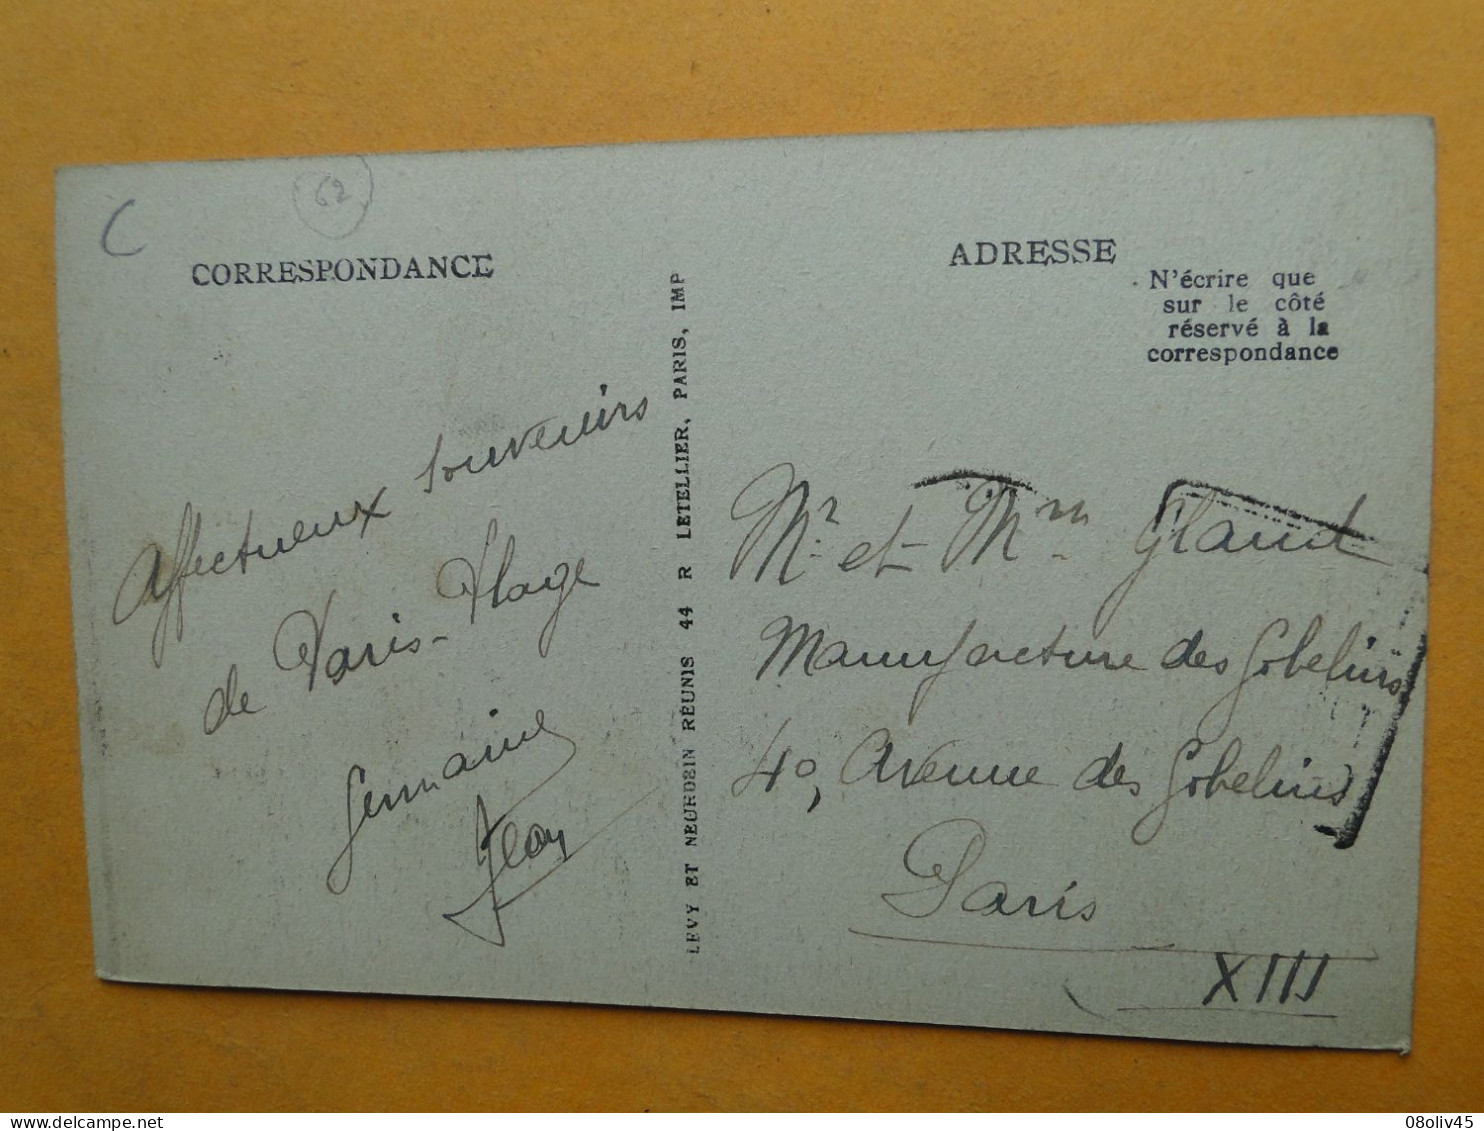 C
62
CORRESPONDANCE
Affectueux souvenirs
de Paris-Plage
Germaine
Jean
LEVY ET NEURDEIN RÉUNIS 44 R LETELLIER, PARIS, IMP
ADRESSE
N'écrire que
sur le côté
réservé à la
correspondance
Mr et Mm
Manufacture des Gobelins
40, Avenue des Gobelins
Paris
XIII
delcampe.net
08oliv45